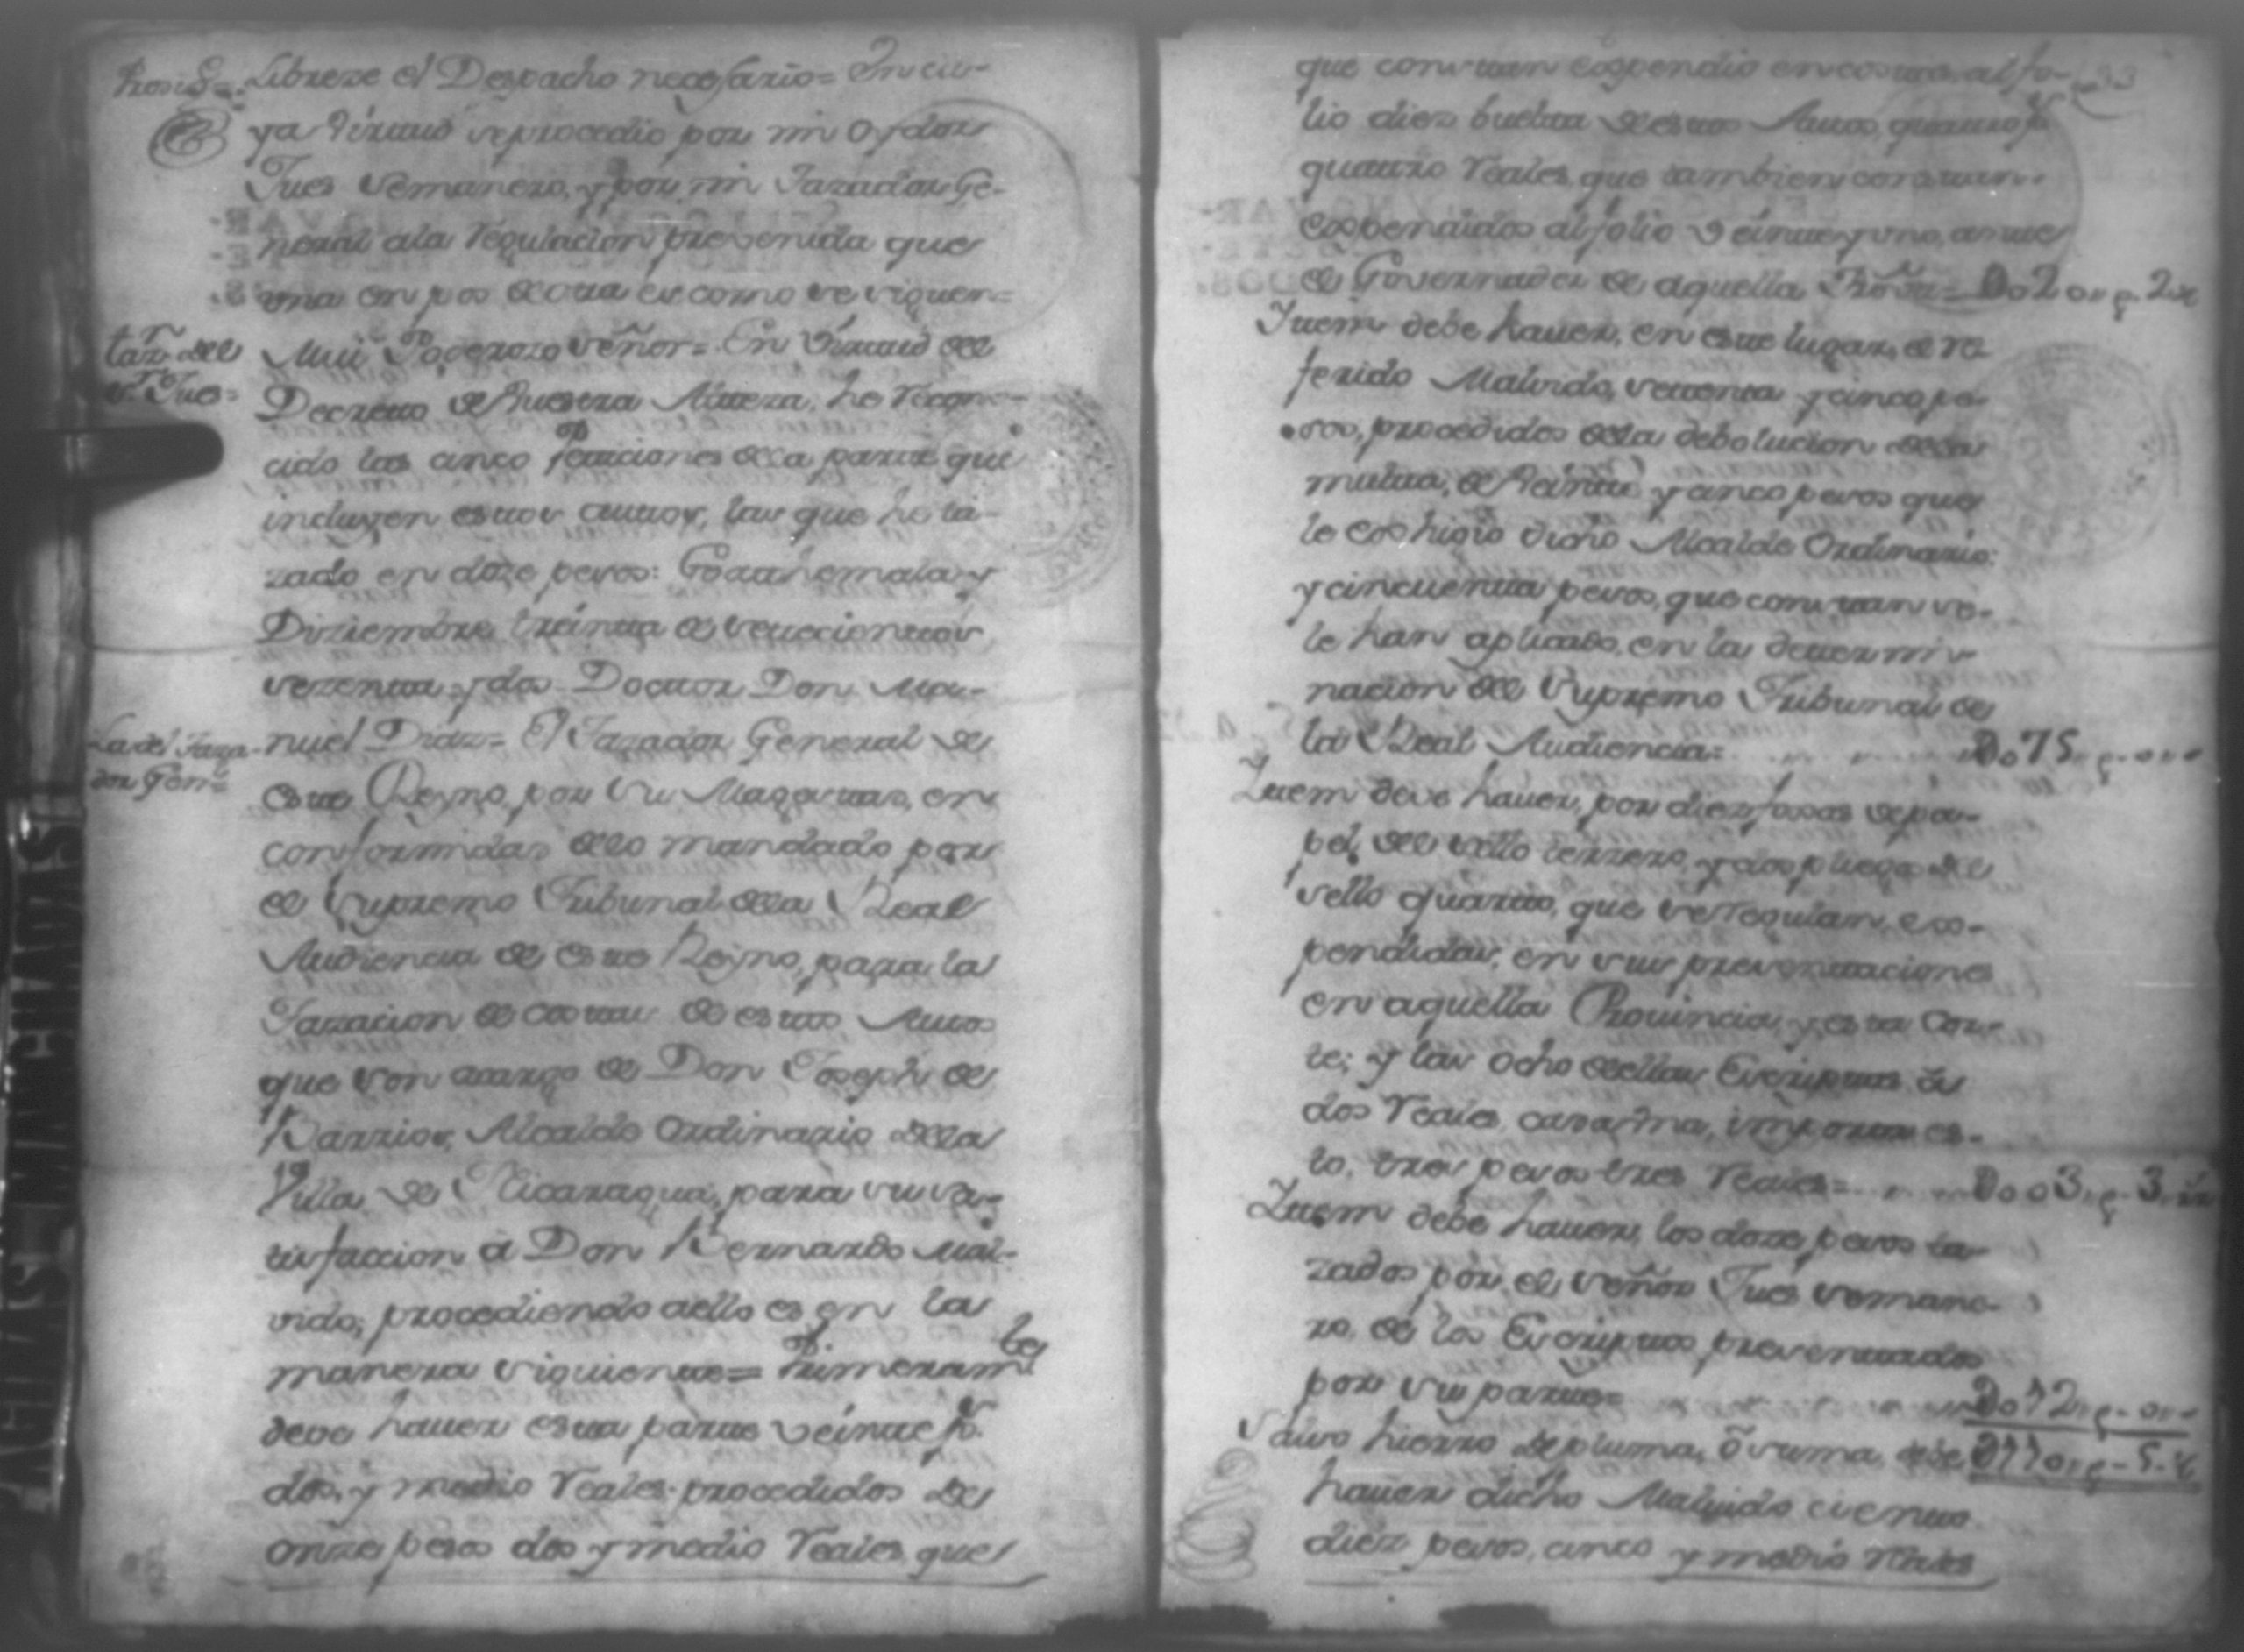 Prosig.=
Librese el Despacho necesario= En cu-
ya virtud se procedio por mi Oydor
Jues Semanero, y por mi Tazador Ge-
neral ala regulacion prevenida que
una en pos de otra es como se siguen=
tas.n del
s.r Jues=
Mui Poderozo señor= En virtud del
Decretto de Vuestra Alteza, he recono-
cido las cinco peticiones dela parte que
incluyen estos auttos, las que he ta-
zado en doze pesos: Goathemala y
Diziembre treinta de settecienttos
sezenta y dos Doctor Don Ma-
nuel Diaz= El Tazador General de
La del Taza-
dor Gen.l=
este Reyno, por Su Magestad, en
conformidad delo mandado por
el Supremo Tribunal dela Real
Audiencia de este Reyno, para la
Tazacion de costas de estos Autos
que son acargo de Don Joseph de
Barrios, Alcalde Ordinario dela
Villa de Nicaragua, para su sa-
tisfaccion á Don Bernardo Mal-
vido; procediendo aello es en la
manera siguiente= Primeram.te
deve hauer esta parte veinte p.s
dos, y medio reales procedidos de
onze pesos dos y medio reales que
que constan expendio en costas al fo-
lio diez buelta de estos Autos, quattro p.s
quattro reales que tambien constan
expendidos al folio veinte y uno, ante
el Governador de aquella Prov.a=
Ytem debe hauer, en este lugar, el re
ferido Malvido, settenta y cinco pe-
sos, procedidos dela debolucion dela
multa, de veinte y cinco pesos que
le exhigio dicho Alcalde Ordinario:
y cincuenta pesos, que constan se-
le han aplicado, en la determi-
nacion del Supremo Tribunal de
la Real Audiencia= 75
Ytem deve hauer, por diez foxas de pa-
pel del sello terzero, y dos pliegos del
sello quarto, que se regulan, ex-
pendidas, en sus presentaciones
en aquella Provincia, y esta Cor-
te; y las ocho dellas Escriptas á
dos reales cada una, importa es-
to, tres pesos tres reales= 3 3
Ytem debe hauer, los doze pesos ta-
zados por el señor Jues semane-
ro, de los Escriptos presentados
por su parte= 12
Salvo hierro de pluma, ó suma, debe 110 5
hauer dicho Malvido ciento
diez pesos, cinco y medio reales